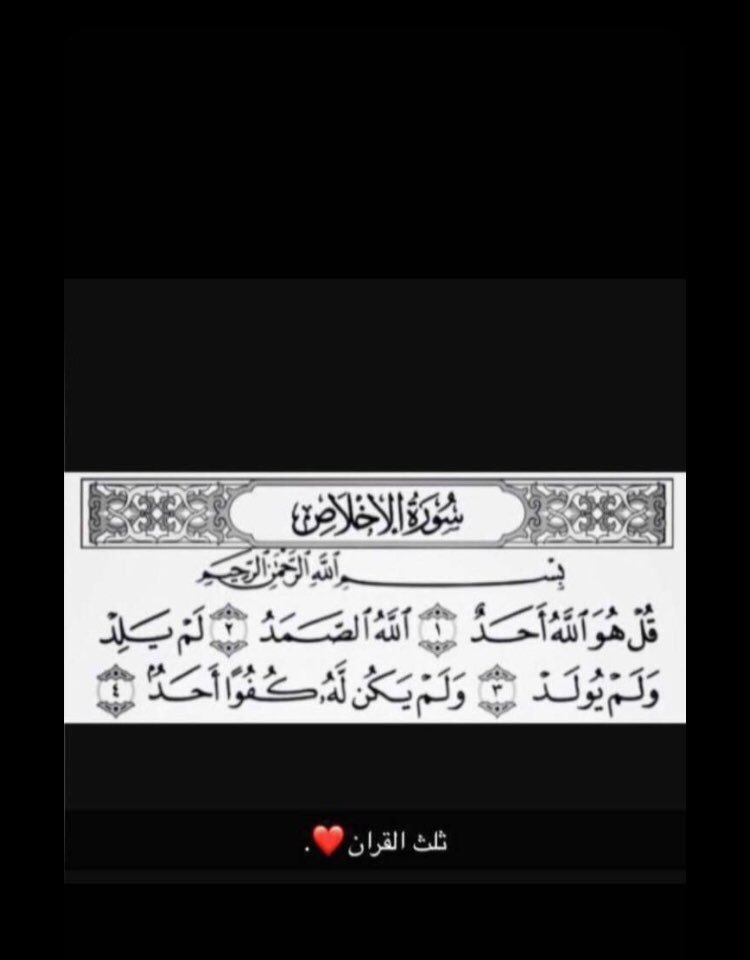 سُورَةُ الإِخْلَاصِ
بِسْمِ ٱللَّهِ ٱلرَّحْمَٰنِ ٱلرَّحِيمِ
قُلْ هُوَ ٱللَّهُ أَحَدٌ ١ ٱللَّهُ ٱلصَّمَدُ ٢ لَمْ يَلِدْ
وَلَمْ يُولَدْ ٣ وَلَمْ يَكُن لَّهُۥ كُفُوًا أَحَدٌۢ ٤
ثلث القران❤️.